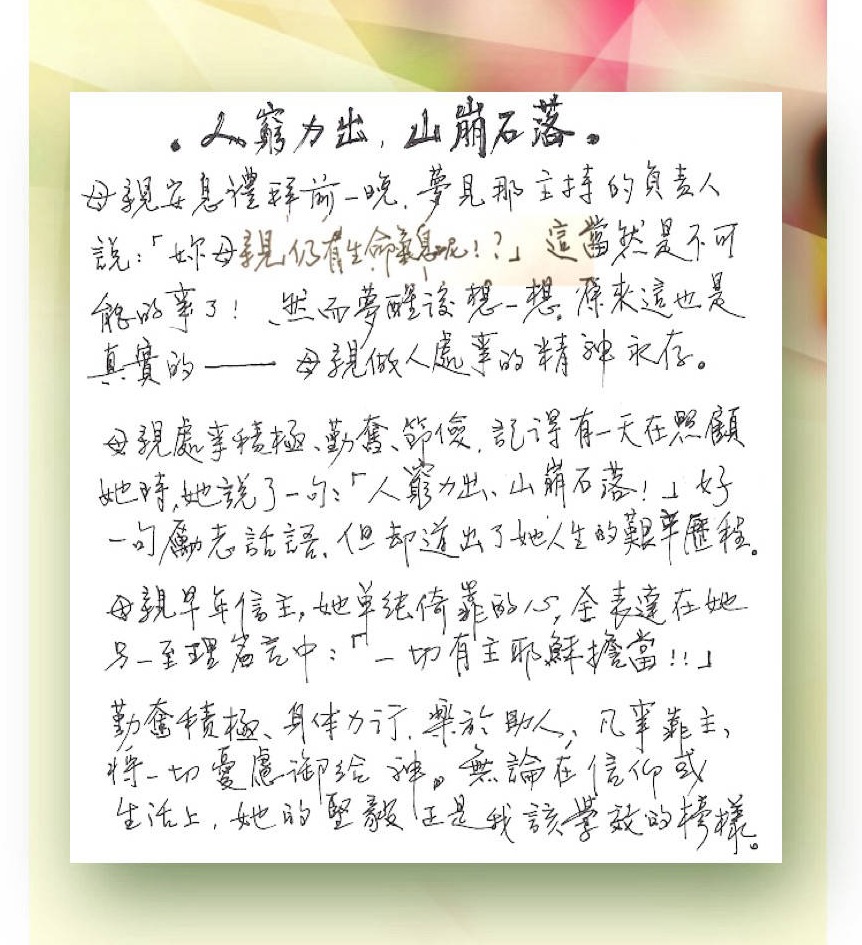 。人窮力出,山崩石落。
母親安息禮拜前一晚,夢見那主持的負責人
說:「妳母親仍有生命氣息呢!?」這當然是不可
能的事了!然而夢醒後想一想,原來這也是
真實的——母親做人處事的精神永存。
母親處事積極、勤奮、節儉,記得有一天在照顧
她時,她說了一句:「人窮力出、山崩石落!」好
一句勵志話語,但却道出了她人生的艱辛歷程。
母親早年信主,她単純倚靠的心,全表達在她
另一至理名言中:「一切有主耶穌擔當!!」
勤奮積極、身体力行,樂於助人,凡事靠主,
將一切憂慮卸給神。無論在信仰或
生活上,她的堅毅正是我該學效的榜樣。